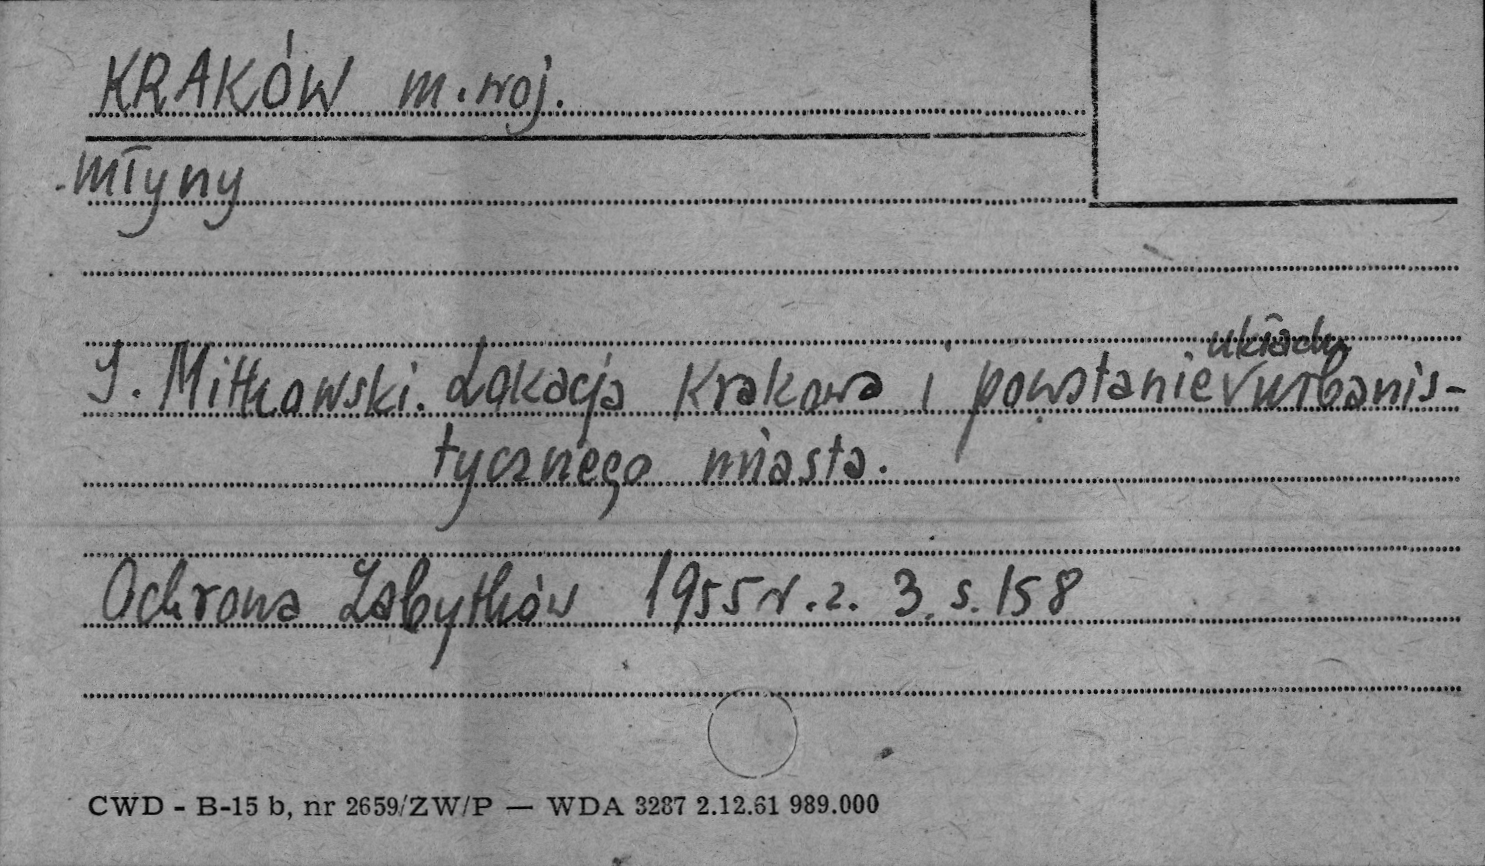 KRAKÓW m. woj.
młyny
J. Mitkowski. Lokacja Krakowa i powstanie układu urbanis-
tycznego miasta.
Ochrona Zabytków 1955 r. z. 3. s. 158
CWD - B-15 b, nr 2659/ZW/P — WDA 3287 2.12.61 989.000